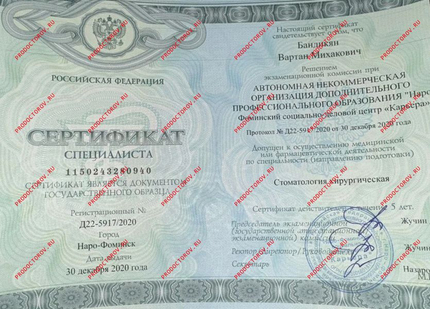 РОССИЙСКАЯ ФЕДЕРАЦИЯ
СЕРТИФИКАТ
СПЕЦИАЛИСТА
1150243280940
СЕРТИФИКАТ ЯВЛЯЕТСЯ ДОКУМЕНТОМ
ГОСУДАРСТВЕННОГО ОБРАЗЦА
Регистрационный №
Д22-5917/2020
Город
Наро-Фоминск
Дата выдачи
30 декабря 2020 года
Настоящий сертификат
свидетельствует о том, что
Бандикян
Вартан Михакович
Решением
экзаменационной комиссии при
АВТОНОМНАЯ НЕКОММЕРЧЕСКАЯ
ОРГАНИЗАЦИЯ ДОПОЛНИТЕЛЬНОГО
ПРОФЕССИОНАЛЬНОГО ОБРАЗОВАНИЯ "Наро-
Фоминский социально-деловой центр «Карьера»
Протокол № Д22-5917-2020 от 30 декабря 2020 года
Допущен к осуществлению медицинской
или фармацевтической деятельности
по специальности (направлению подготовки)
Стоматология хирургическая
Сертификат действителен в течение 5 лет.
Председатель экзаменационной Жучин
(Государственной аттестационной,
экзаменационной) комиссии
Ректор (директор) Жучин
Секретарь
PRODOCTOROV.RU